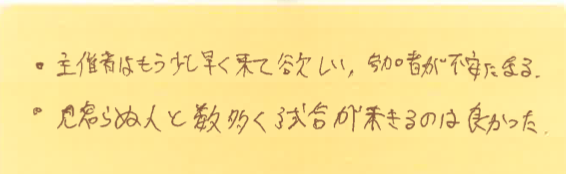 ・主催者はもう少し早く来て欲しい,参加者が不安になる.
・見知らぬ人と数多く試合が来きるのは良かった.